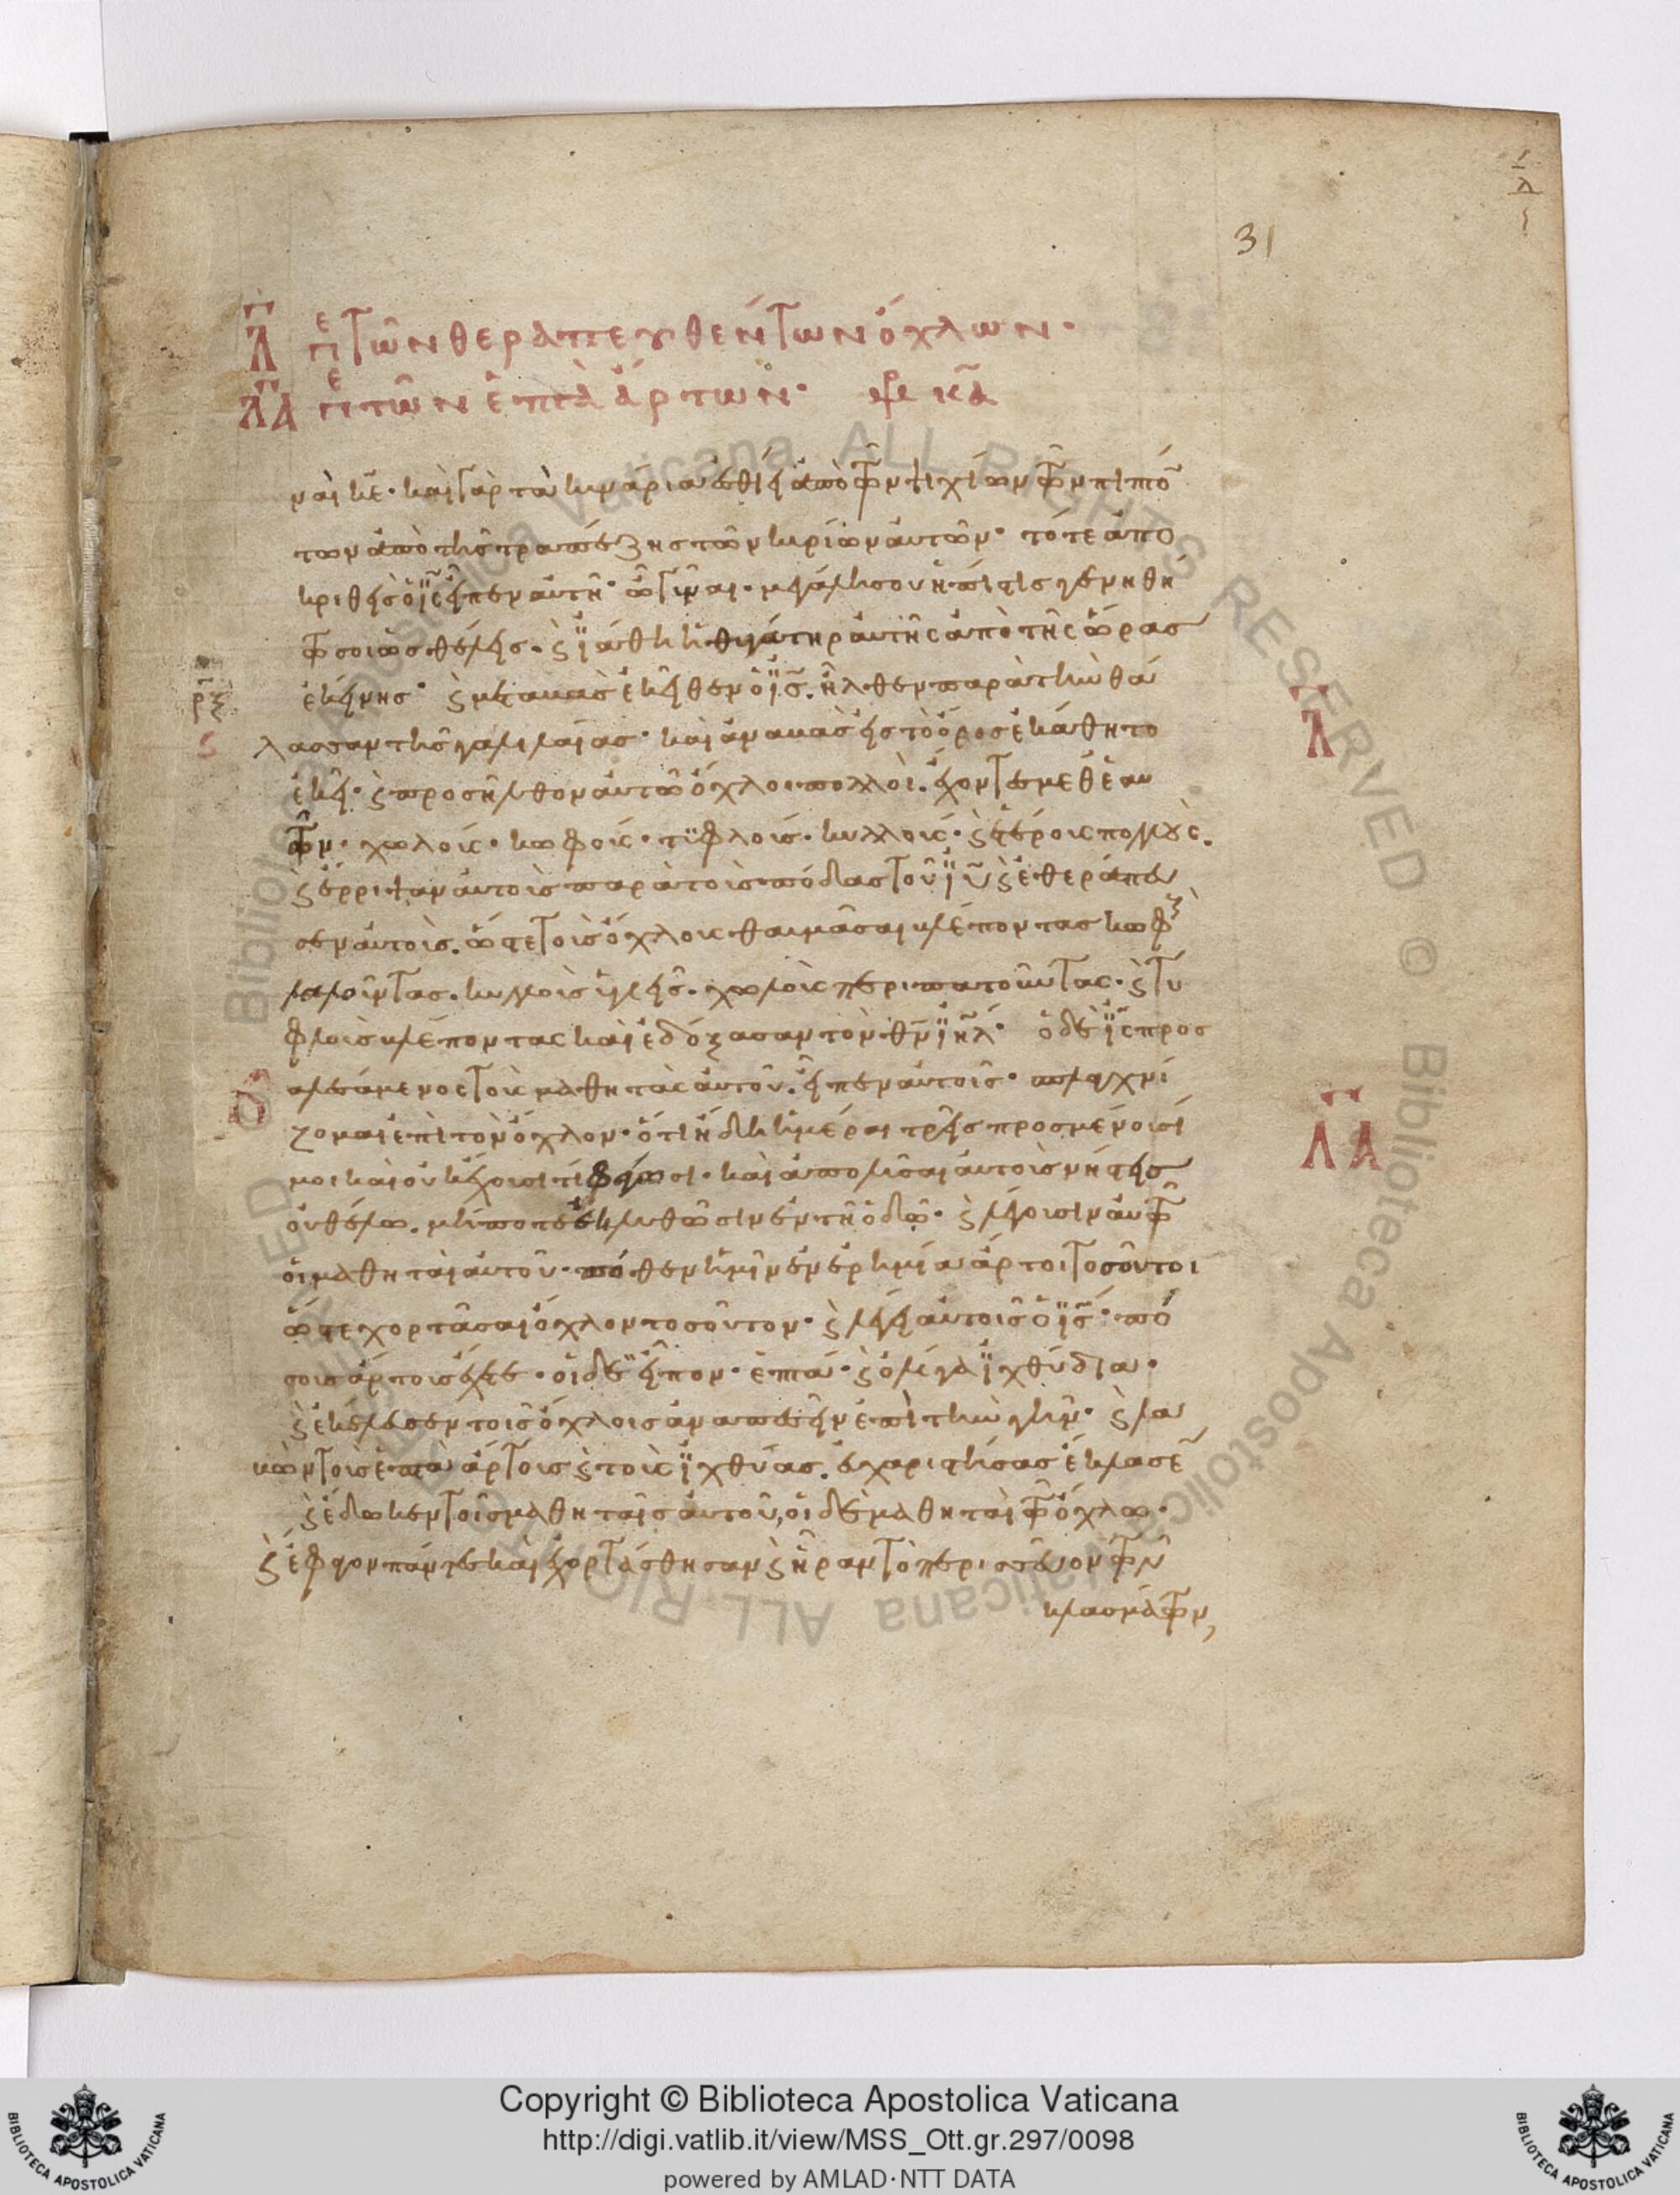 31
λ πε τῶν θεραπευθέντων ὄχλων·
λα πε τῶν ἑπτὰ ἄρτων·
ναὶ κε· καὶ γὰρ τὰ κυνάρια ἐσθίει ἀπὸ τῶν ψιχίων τῶν πιπτό
των ἀπὸ τῆς τραπέζης τῶν κυρίων αὐτῶν· τότε ἀπο
κριθεὶς ὁ ϊς εἶπεν αὐτῆ· ὦ γύναι· μεγάλη σου ἡ πίστις γενηθή
τω σοι ὡς θέλεις· ϗ ϊάθη ἡ θυγάτηρ αὐτῆς ἀπὸ τῆς ὥρας
ἐκείνης· ϗ μεταβὰς ἐκεῖθεν ὁ ϊς. ἦλθεν παρὰ τὴν θά
ρξ
λ
λασσαν τῆς γαλιλαίας· καὶ ἀναβὰς εἰς τὸ ὄρος ἐκάθητο
ἐκεῖ· ϗ προσῆλθον αὐτῶ ὄχλοι πολλοὶ. ἔχοντες μεθ' ἑαυ
τῶν· χωλούς· κωφούς· τυφλούς· κυλλούς· ϗ ἑτέρους πολλούς.
ϗ ἔρριψαν αὐτοὺς παρὰ τοὺς πόδας τοῦ ϊυ ϗ ἐθεράπευ
σεν αὐτούς. ὥστε τοὺς ὄχλους θαυμᾶσαι βλέποντας κωφοὺς
λαλοῦντας. κυλλοὺς ὑγιεῖς. χωλοὺς περιπατοῦντας· ϗ τυ
φλοὺς βλέποντας καὶ ἐδόξασαν τὸν θν ϊηλ· ὁ δὲ ϊς προς
λα
καλεσάμενος τοὺς μαθητὰς αὐτοῦ. εἶπεν αὐτοῖς· σπλαγχνί
ζομαι ἐπὶ τὸν ὄχλον· ὅτι ἤδη ἡμέραι τρεῖς προσμένουσί
μοι καὶ οὐκ ἔχουσι τί φάγωσι· καὶ ἀπολῦσαι αὐτοὺς νήστεις
οὐ θέλω. μήποτε ἐκλυθῶσιν ἐν τῆ ὁδῶ· ϗ λέγουσιν αὐτῶ
οἱ μαθηταὶ αὐτοῦ· πόθεν ἡμῖν ἐν ἐρημία ἄρτοι τοσοῦτοι
ὥστε χορτᾶσαι ὄχλον τοσοῦτον· ϗ λέγει αὐτοῖς ὁ ϊς· πό
σους ἄρτους ἔχετε· οἱ δὲ εἶπον· ἑπτά· ϗ ὀλίγα ϊχθύδια·
ϗ ἐκέλευσεν τοῖς ὄχλοις ἀναπεσεῖν ἐπὶ τὴν γῆν· ϗ λα
βὼν τοὺς ἑπτὰ ἄρτους ϗ τοὺς ϊχθύας. εὐχαριστήσας ἔκλασε
ϗ ἔδωκεν τοῖς μαθηταῖς αὐτοῦ, οἱ δὲ μαθηταὶ τῶ ὄχλω·
ϗ ἔφαγον πάντες καὶ ἐχορτάσθησαν ϗ ἦραν τὸ περισσεῦον τῶν
κλασμάτων,
Copyright © Biblioteca Apostolica Vaticana
http://digi.vatlib.it/view/MSS_Ott.gr.297/0098
powered by AMLAD·NTT DATA
BIBLIOTECA APOSTOLICA VATICANA
BIBLIOTECA APOSTOLICA VATICANA